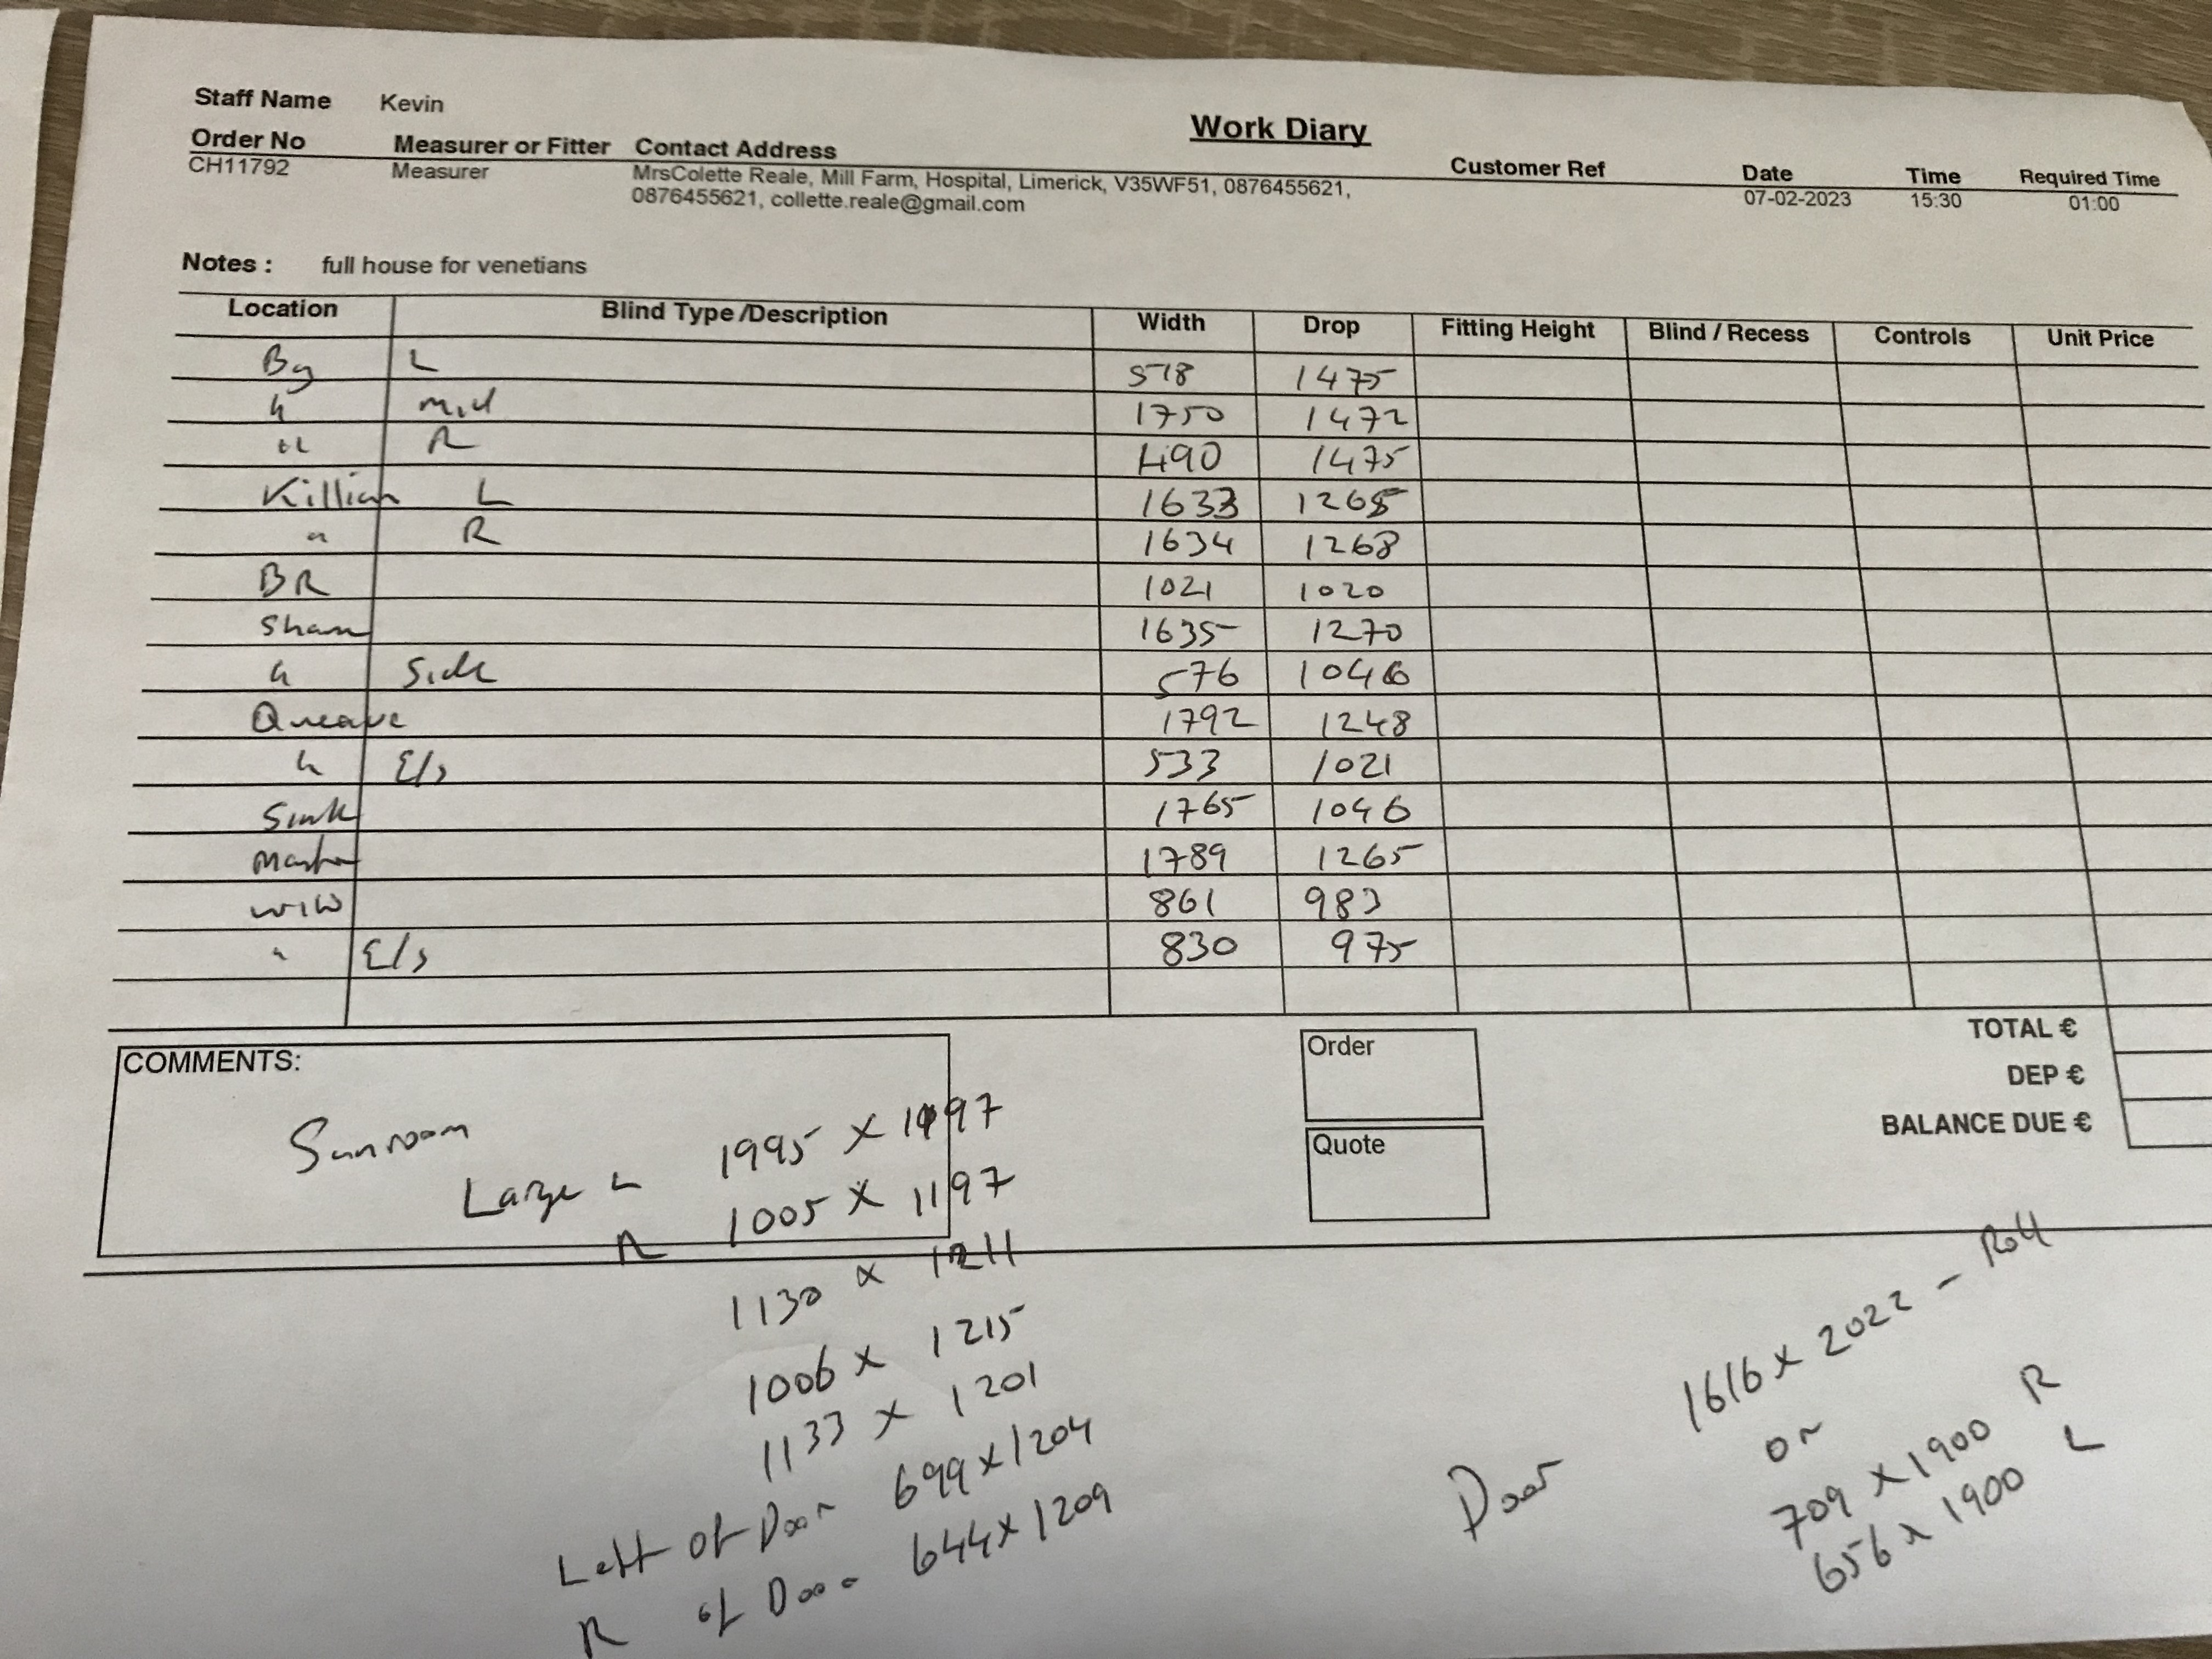 Staff Name Kevin
Work Diary
Order No Measurer or Fitter Contact Address Customer Ref Date Time Required Time
CH11792 Measurer MrsColette Reale, Mill Farm, Hospital, Limerick, V35WF51, 0876455621, 07-02-2023 15:30 01:00
0876455621, collette.reale@gmail.com
Notes : full house for venetians
Location Blind Type /Description Width Drop Fitting Height Blind / Recess Controls Unit Price
L 518 1475
" mid 1750 1472
" R 490 1475
Killian L 1633 1265
" R 1634 1268
BR 1021 1020
1635 1270
" Side 576 1046
1792 1248
" E/s 533 1021
Sink 1765 1046
Master 1789 1265
WIW 861 983
" E/s 830 975
TOTAL €
DEP €
BALANCE DUE €
COMMENTS:
Order
Quote
Sunroom
Large L 1995 x 1197
R 1005 x 1197
1130 x 1211
1006 x 1215
1133 x 1201
Left of Door 699 x 1204
R of Door 644 x 1209
Door 1616 x 2022 - Roll
or
709 x 1900 R
656 x 1900 L